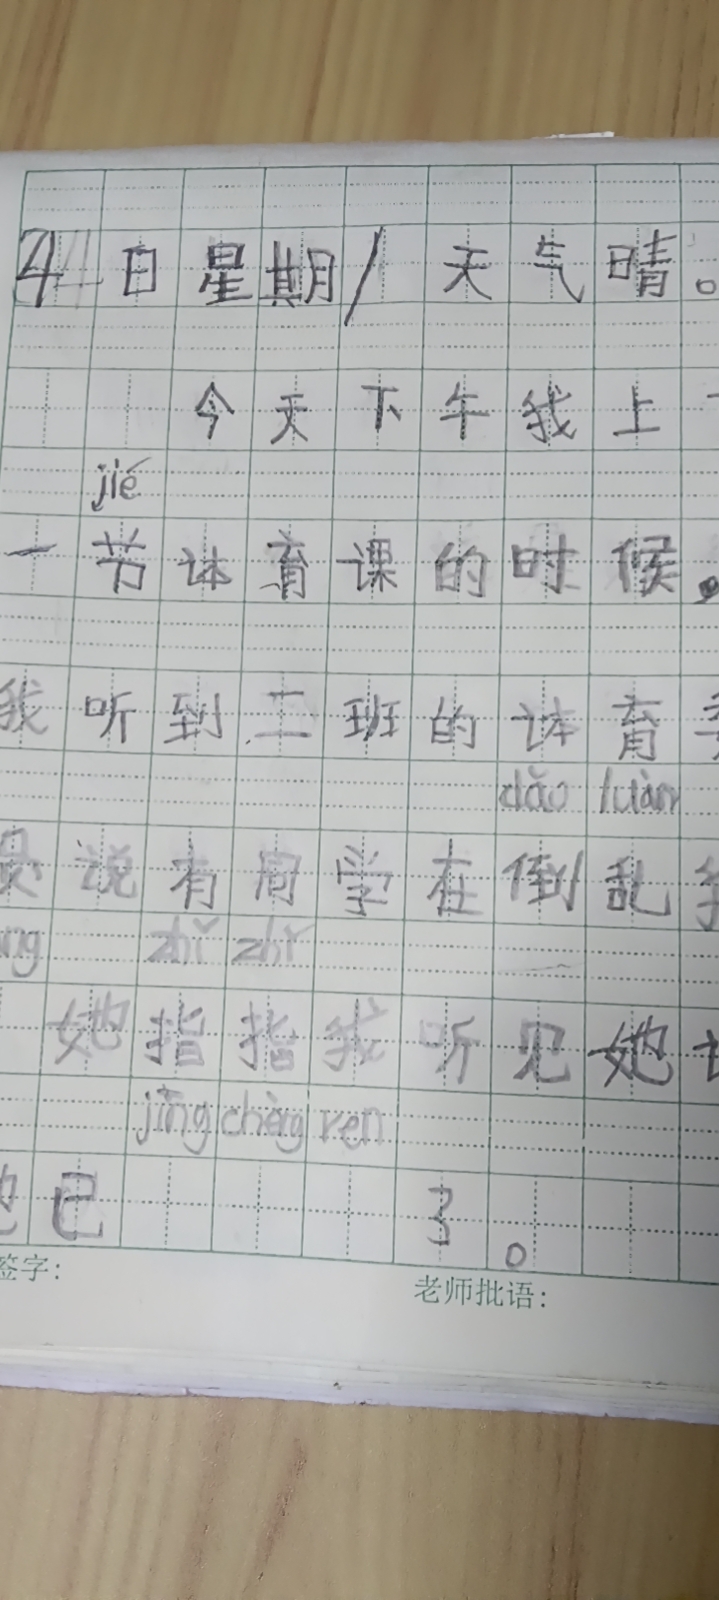 4日星期/天气晴。
今天下午我上
jié
一节体育课的时候
我听到二班的体育
dǎo luàn
说有同学在倒乱
zhǐ zhǐ
她指指我听见她
jīng chèng ren
已 了。
签字:
老师批语: